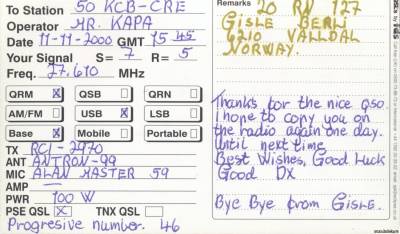 To Station 50 KCB-CRE
Operator MR. KAPA
Date 11-11-2000 GMT 15 45
Your Signal S= 7 R= 5
Freq. 27.610 MHz
QRM X QSB QRN
AM/FM USB X LSB
Base X Mobile Portable
TX RCI-2970
ANT ANTRON-99
MIC ALAN MASTER 59
AMP
PWR 100 W
PSE QSL X TNX QSL
Progresive number. 46
Remarks 20 RN 127
GISLE BERLI
6210 VALLDAL
NORWAY.
Thanks for the nice qso
I hope to copy you on
the radio again one day.
Until next time
Best Wishes, Good Luck
Good DX
Bye Bye from GISLE.